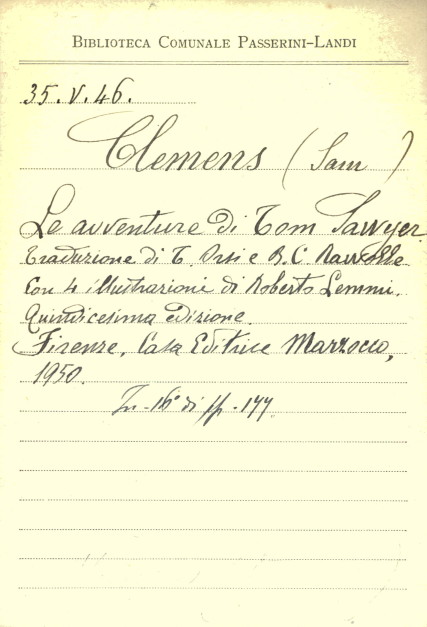 BIBLIOTECA COMUNALE PASSERINI-LANDI
35.V.46.
Clemens (Sam)
Le avventure di Tom Sawyer
Traduzione di T. Orsi e B. C. Rawolle
Con 4 illustrazioni di Roberto Lemmi.
Quindicesima edizione.
Firenze, Casa Editrice Marzocco,
1950.
In-16° di pp. 177.